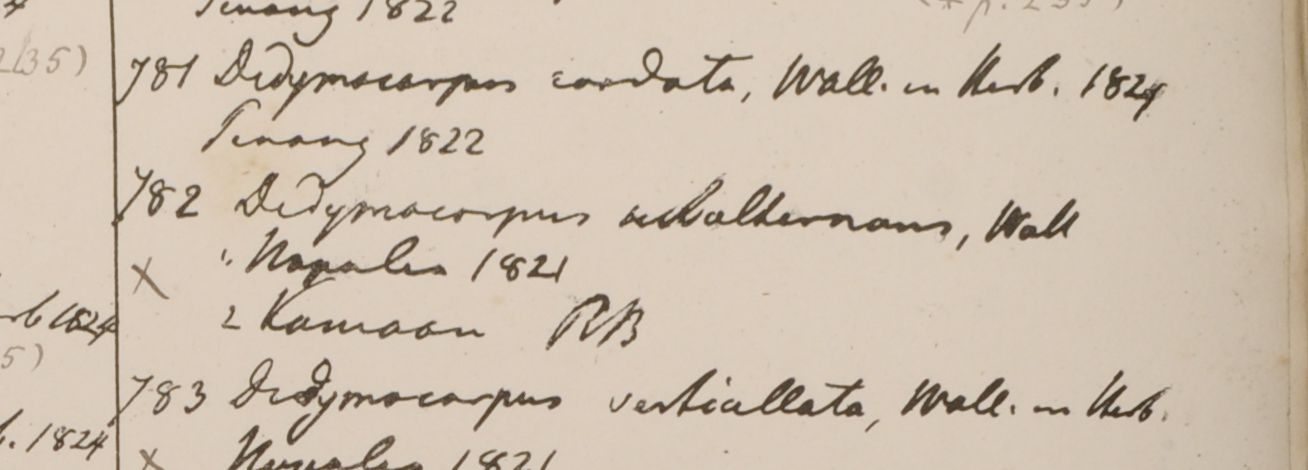 Penang 1822
(* p. 235)
2135)
781 Didymocarpus cordata, Wall. in Herb. 1824
Penang 1822
782 Didymocarpus subalternans, Wall
1. Napalia 1821
x
2 Kamaon RB
rb 1824
5)
783 Didymocarpus verticillata, Wall. in Herb.
. 1824
x Napalia 1821